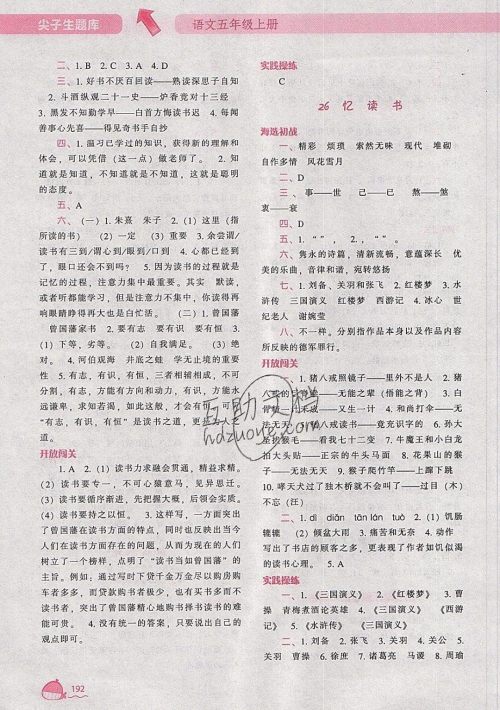 尖子生题库
语文五年级上册
二、1. B 2. C 3. A 4. D
三、1. 好书不厌百回读——熟读深思子自知
2. 斗酒纵观二十一史——炉香竞对十三经
3. 黑发不知勤学早——白首方悔读书迟 4. 每闻
善事心先喜——得见奇书手自抄
四、1. 温习已学过的知识，获得新的理解和
体会，可以凭借（这一点）做老师了。 2. 知
道就是知道，不知道就是不知道，这就是聪明
的态度。
五、A
六、（一）1. 朱熹 朱子 2.（1）这里（指
所读的书）（2）一定（3）重要 3. 余尝谓/
读书有三到/谓心到/眼到/口到 4. 心都已经到
了，眼口还会不到吗？ 5. 因为读书的过程就是
记忆的过程，注意力集中最重要。其实 默读，
或者听都能很好，但是注意力不集中，你读得再
响眼睛睁得再大也不行。（二）1. 曾国藩
曾国藩家书 2. 要有志 要有识 要有恒 3.
（1）下等，劣等。（2）自我满足。（3）绝对。
4. 河伯观海 井底之蛙 学无止境的重要
性 5. 有志，有识，有恒，三者相辅相成，不可
分割，有志，方能有方向和动力，有识，才能永
远谦卑，求知若渴，有恒，则没有不成功的可能。
“有志，有识，有恒”是读书之道，更是为人之
道。
开放闯关
1. A 2.（1）读书力求融会贯通，精益求精。
（2）读书要专注，不可心猿意马，见异思迁。
（3）读书要循序渐进，先把握大概，后领会实质。
（4）读书要持之以恒。 3. 这样写，一方面突出
了曾国藩在读书方面的特点，同时也反映出当今
人们在读书方面存在的弊病，从而为今天的人们
树立了一个榜样，点明了“读书当如曾国藩”的
主旨。例如：通过写时下贷千金万金尽以购房购
车者多多，而贷款购书者极少，也有买书多而不
读书者，突出了曾国藩精心地购书择书读书的难
能可贵。 4. 没有统一的答案，只要说出自己的
观点即可。
实践操练
C
26 忆读书
海选初战
一、精彩 烦琐 索然无味 现代 堆砌
自作多情 风花雪月
二、D
三、事——世 己——已 熬——煞
衷——衰
四、D
五、1. “ ”， 2. ，“ ”。
六、隽永的诗篇，清新流畅，意蕴深长 优
美的乐曲，音律和谐，宛转悠扬
七、1. 刘备、关羽和张飞 2. 红楼梦 3. 水
浒传 三国演义 红楼梦 西游记 4. 冰心 世
纪老人 谢婉莹
八、不一样。分别指作品本身以及作品内容
所反映的德军罪行。
开放闯关
一、1. 猪八戒照镜子——里外不是人 2. 猪
八戒的脊梁——悟能之背（无能之辈） 3.
4. 和尚打伞——无
法无天 5.
——竞充识字的 6. 孙大
圣拔猴毛——看我七十二变 7. 牛魔王和小白龙
拍大头贴——正宗的牛头马面 8. 花果山的猴
子——无法无天 9. 猴子爬竹竿——上蹿下跳
10. 哮天犬过了独木桥就不会叫了——过目（木）
不忘（汪）
二、1. dì diān tān lán tuò 2.（1）饥肠
辘辘 （2）倾盆大雨 3. 痛苦和无奈 4. 动作
写出了书店的顾客之多，更表现了作者偷偷阅
读的读书心理。 5. A
实践操练
一、1.《三国演义》《红楼梦》 2. 曹
操 青梅煮酒论英雄 3.《三国演义》《西游
记》 4.《水浒传》 《三国演义》
二、1. 刘备 2. 张飞 3. 关羽 4. 关公 5.
曹操 6. 徐庶 7. 诸葛亮 8. 马超 8. 周瑜
192